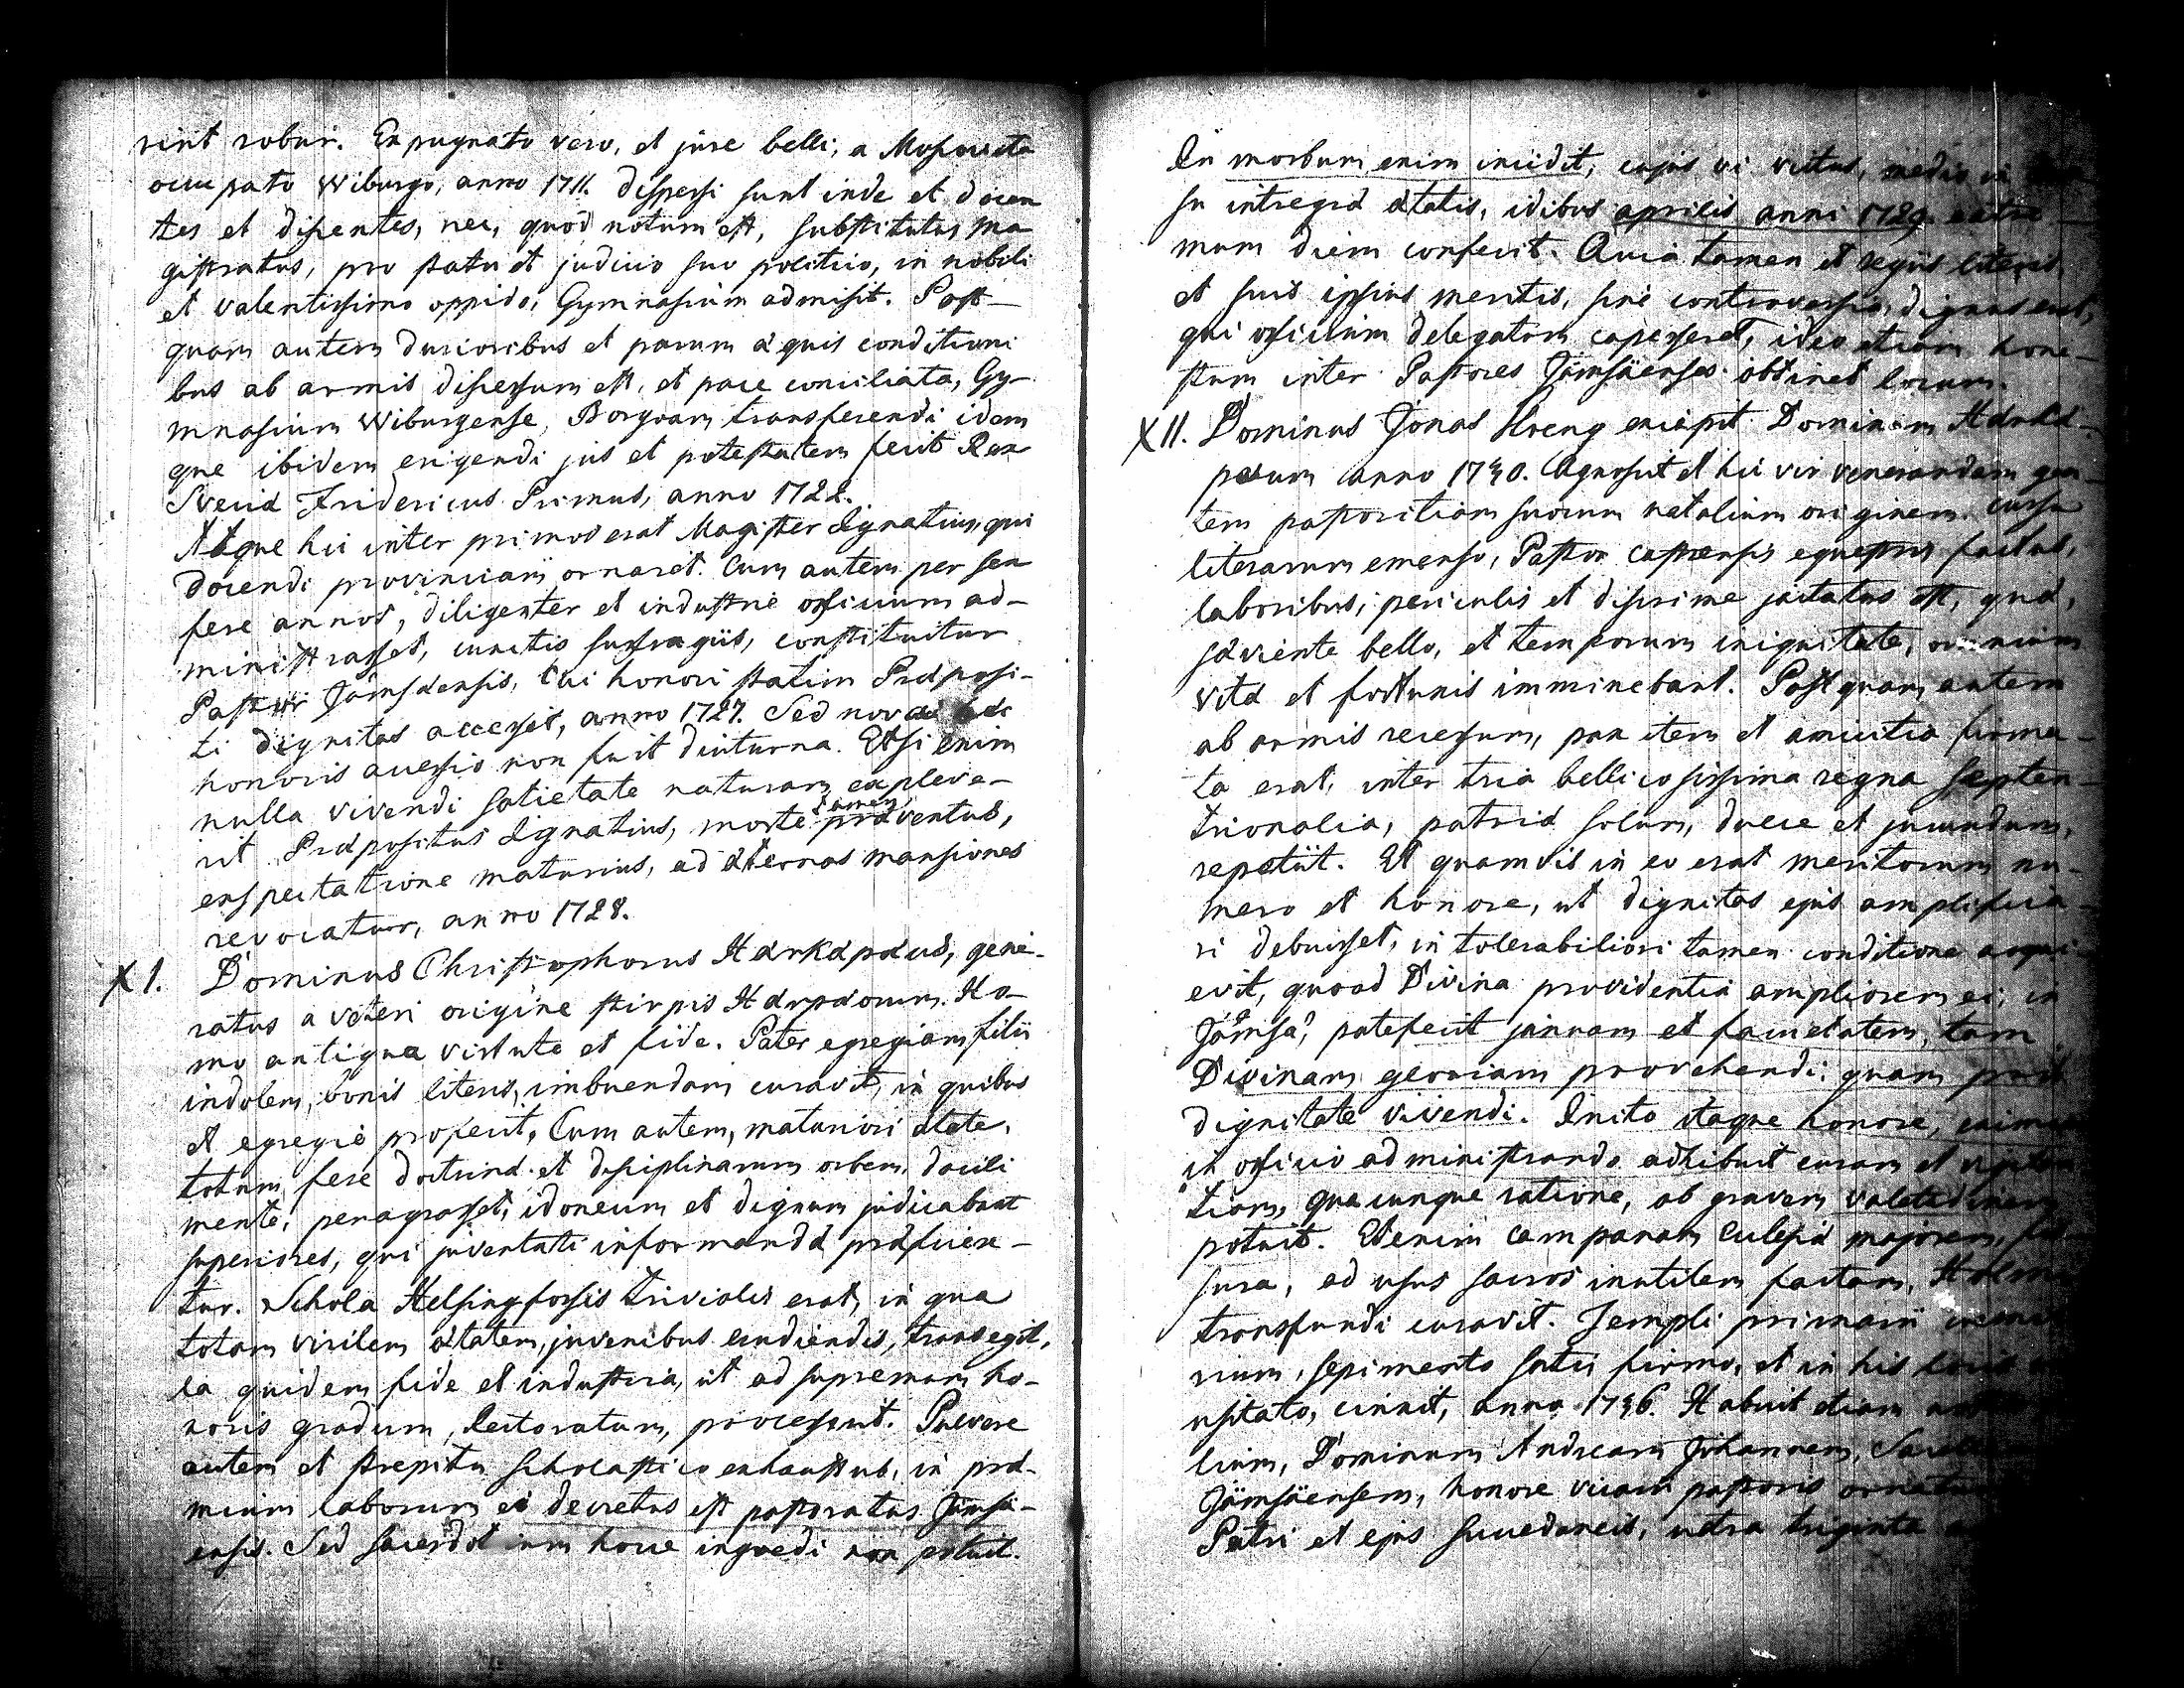 rint robur. Expugnato vero, et jure belli, a Moscovita
occupato Wiburgo, anno 1711. dispersi sunt inde et docen
tes et discentes, nec, quod notum est, substitutus ma
gistratus, pro statu et judicio suo politico, in nobili
et valentissimo oppido, Gymnasium admisit. Post-
quam autem durioribus et parum æquis conditioni
bus ab armis discessum est, et pace conciliata, Gy-
mnasium Wiburgense, Borgoam transferendi idem
que ibidem erigendi jus et potestatem fecit Rex
Sveciæ Fridericus Primus, anno 1722.
Atque hic inter primos erat Magister Lignatius, qui
docendi provinciam ornaret. Cum autem per sex
fere annos, diligenter et industrie officium ad-
ministrasset, cunctis suffragiis, constituitur
Pastor Jämsäensis, Cui honori statim Præposi-
ti dignitas accessit, anno 1727. Sed
honoris accessio non fuit diuturna. Etsi enim
nulla vivendi satietate naturam expleve-
rit Præpositus Lignatius, morte tamen præventus,
exspectatione maturius, ad æternas mansiones
revocatur, anno 1728.
XI. Dominus Christophorus Hærkæpæus, gene-
ratus a veteri origine stirpis Hærpæorum. Ho-
mo antiqua virtute et fide. Pater egregiam filii
indolem, bonis literis, imbuendam curavit, in quibus
et egregie profecit. Cum autem, maturiori ætate,
totum fere doctrinæ et disciplinarum orbem, docili
mente, peragrasset, idoneum et dignum judicabant
superiores, qui juventuti informandæ præficere-
tur. Schola Helsingforsis trivialis erat, in qua
totam virilem ætatem, juvenibus erudiendis, transegit,
ea quidem fide et industria, ut ad supremum ho-
noris gradum, Rectoratum, processerit. Pulvere
autem et strepitu scholastico exhaustus, in præ-
mium laborum ei decretus est pastoratus Jämsä-
ensis. Sed sacerdotium hocce ingredi non potuit.
In morbum enim incidit, cujus vi victus, medio in
su integræ ætatis, idibus aprilis anni 1729. extre
mum diem confecit. Quia tamen et regiis literis,
et suis ipsius meritis, sine controversia, dignus erat,
qui officium delegatum capesseret, ideo etiam hone-
stum inter Pastores Jämsäenses obtinet locum.
XII. Dominus Jonas Hoeng excepit Dominum Hærkæ-
pæum anno 1730. Agnoscit et hic vir venerandam gen-
tem pastoritiam suorum natalium originem. Cursu
literarum emenso, Pastor castrensis equestris factus,
laboribus, periculis et discrimine jactatus est, quæ,
sæviente bello, et temporum iniquitate, omnium
vitæ et fortunis imminebant. Postquam autem
ab armis recessum, pax item et amicitia firma-
ta erat, inter tria bellicosissima regna septen-
trionalia, patriæ solum, dulce et jucundum,
repetiit. Et quamvis in eo erat meritorum nu-
mero et honore, ut dignitas ejus amplifica-
ri debuisset, in tolerabiliori tamen conditione acqui-
evit, quoad Divina providentia ampliorem ei, in
Jämsä, patefecit januam et facultatem, tam
Divinam gloriam provehendi, quam
dignitate vivendi. Inito itaque honore,
in officio administrando adhibuit curam et
tiam, quacunque ratione, ob gravem valetudinem
potuit. Etenim campanam Eclesiæ majorem,
sura, ad usus sacros inutilem factam,
transfundi curavit. Templi primarii
rium, sepimento satis firmo, et in his locis
usitato, cinxit, anno 1736. Habuit etiam
lium, Dominum Andream Johannem,
Jämsäensem, honore vicarii pastoris
Patri et ejus succedaneis, ultra triginta